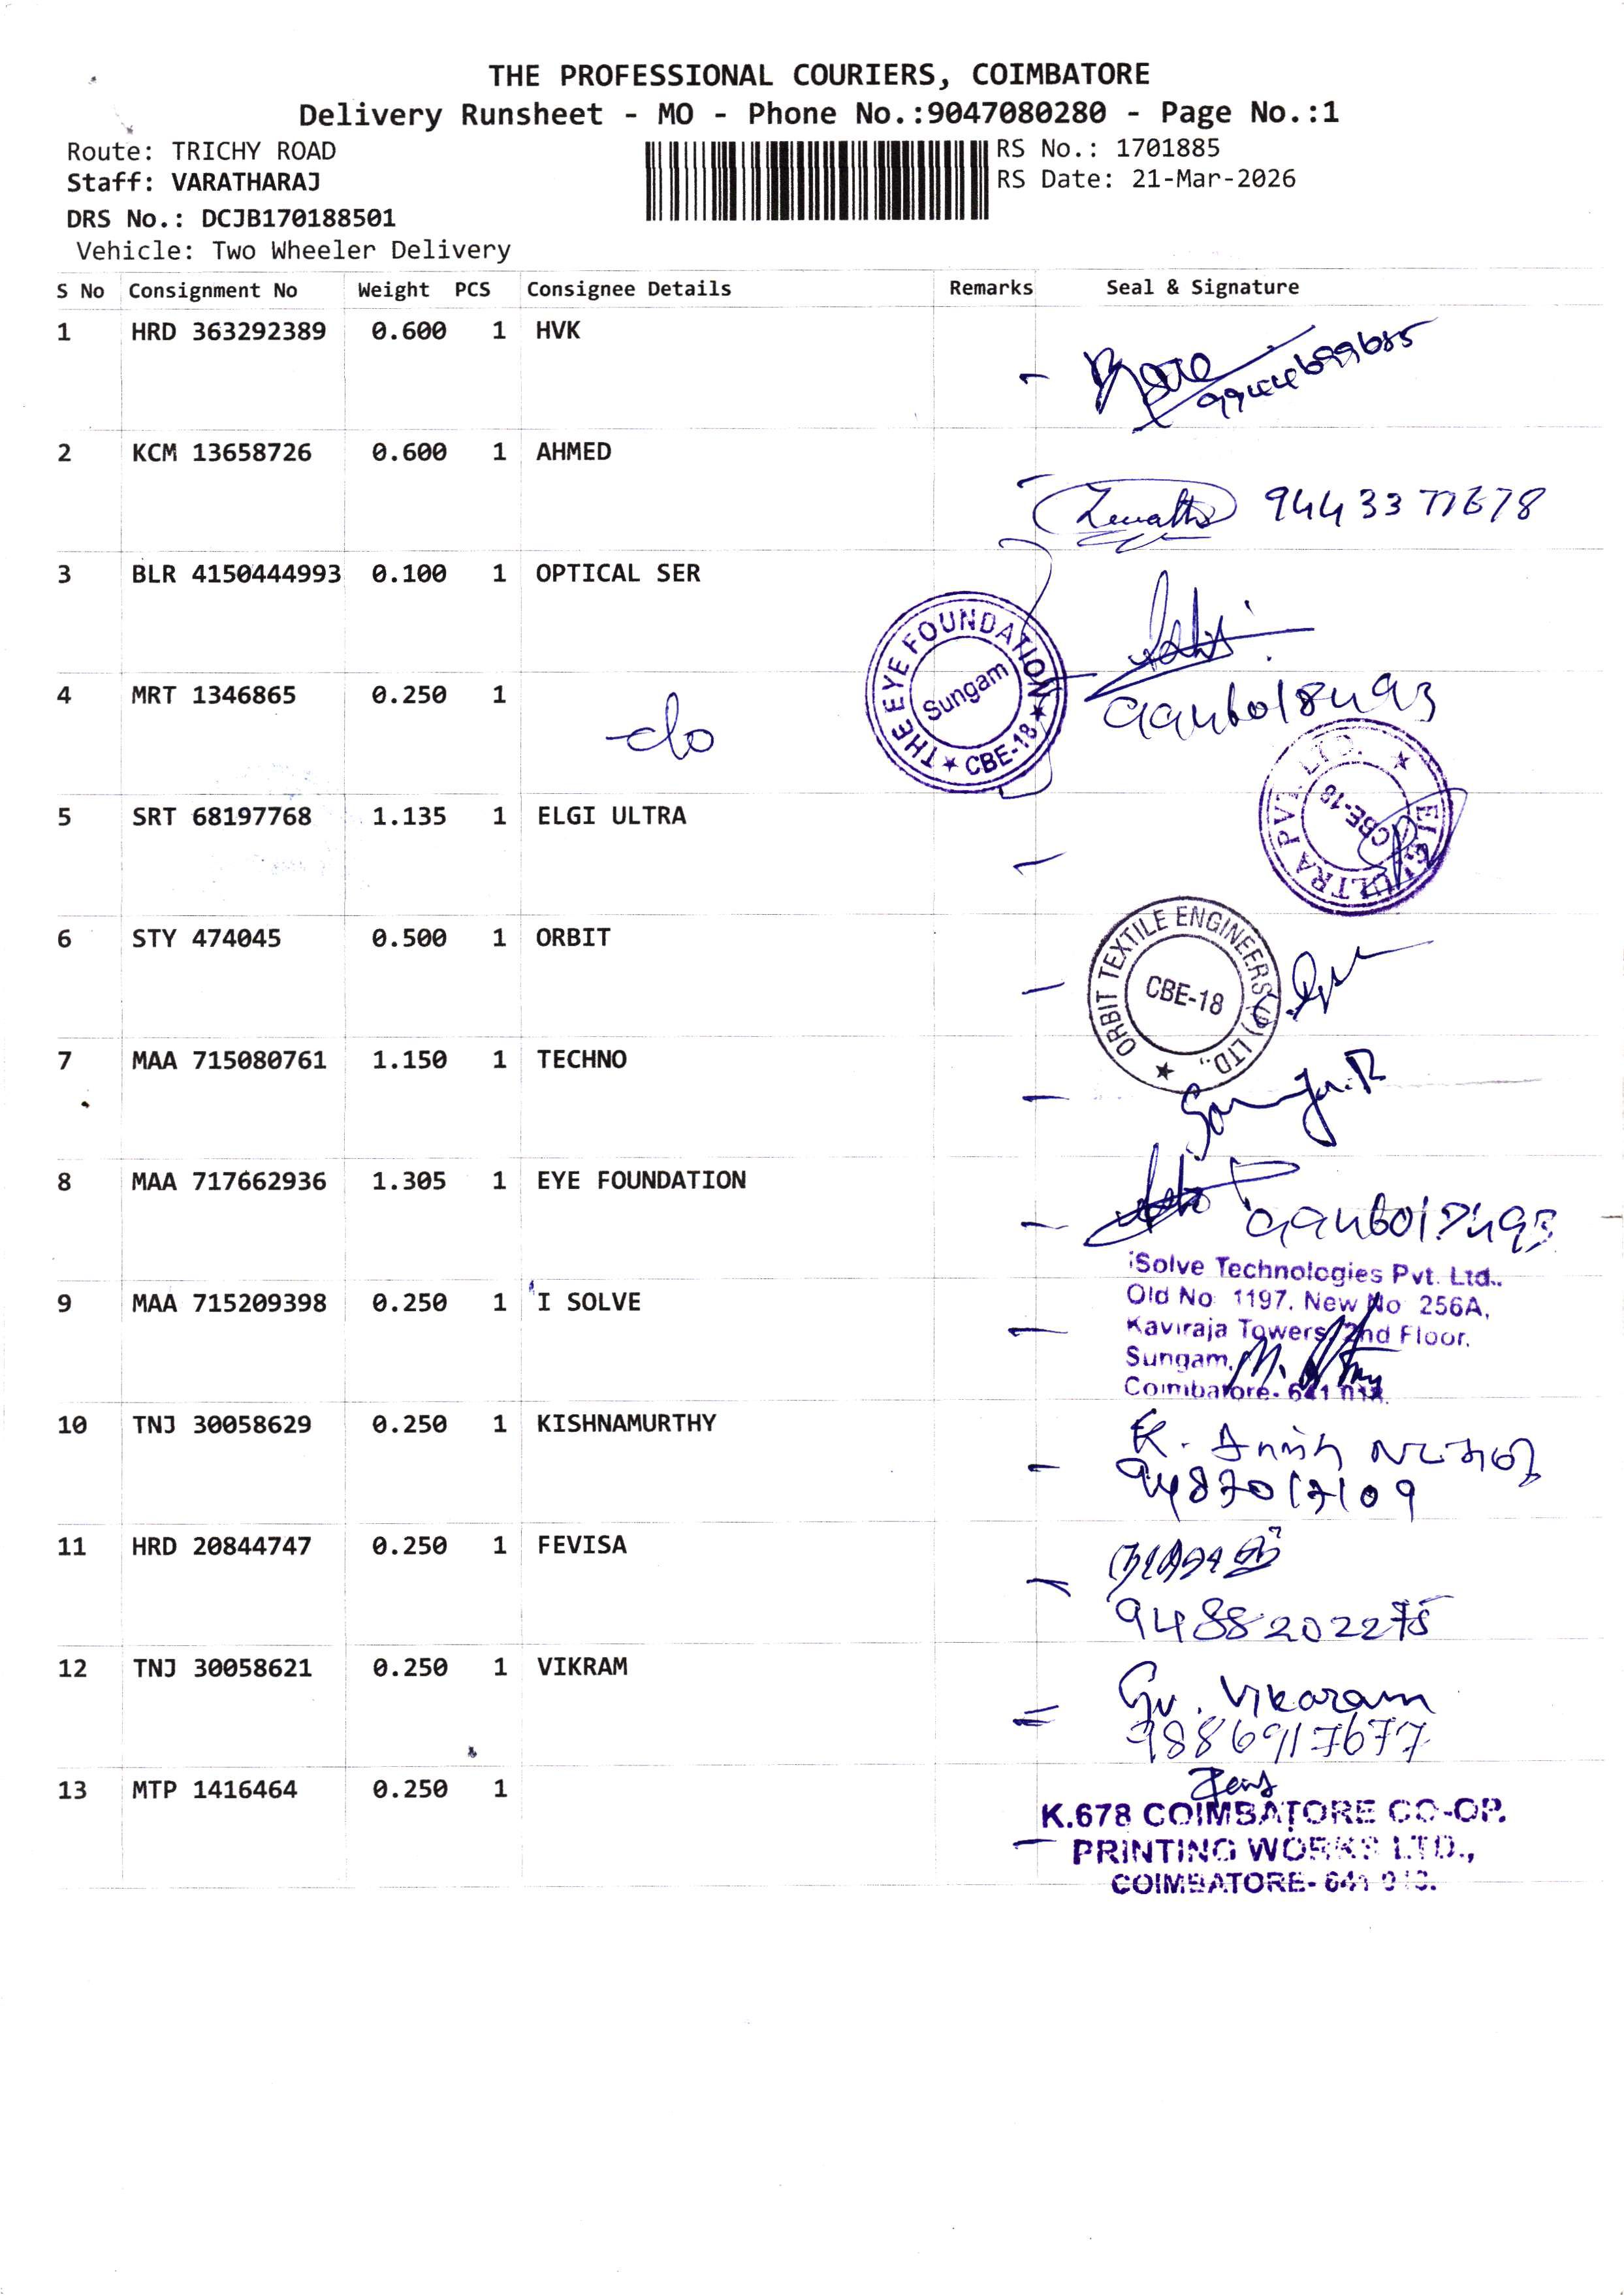 THE PROFESSIONAL COURIERS, COIMBATORE
Delivery Runsheet - MO - Phone No.:9047080280 - Page No.:1
Route: TRICHY ROAD
Staff: VARATHARAJ
DRS No.: DCJB170188501
Vehicle: Two Wheeler Delivery
RS No.: 1701885
RS Date: 21-Mar-2026
S No Consignment No Weight PCS Consignee Details Remarks Seal & Signature
1 HRD 363292389 0.600 1 HVK
2 KCM 13658726 0.600 1 AHMED
3 BLR 4150444993 0.100 1 OPTICAL SER
THE EYE FOUNDATION ★ CBE-18 ★
Sungam
4 MRT 1346865 0.250 1
5 SRT 68197768 1.135 1 ELGI ULTRA
ELGI ULTRA PVT. LTD. ★
CBE-18
6 STY 474045 0.500 1 ORBIT
ORBIT TEXTILE ENGINEERS (P) LTD., ★
CBE-18
7 MAA 715080761 1.150 1 TECHNO
8 MAA 717662936 1.305 1 EYE FOUNDATION
9 MAA 715209398 0.250 1 I SOLVE
iSolve Technologies Pvt. Ltd..
Old No 1197. New No 256A,
Kaviraja Towers, 2nd Floor,
Sungam,
Coimbatore- 641 018.
10 TNJ 30058629 0.250 1 KISHNAMURTHY
11 HRD 20844747 0.250 1 FEVISA
9488202275
12 TNJ 30058621 0.250 1 VIKRAM
Gv. Vikaram
9886917677
13 MTP 1416464 0.250 1
K.678 COIMBATORE CO-OP.
PRINTING WORKS LTD.,
COIMBATORE- 641 018.